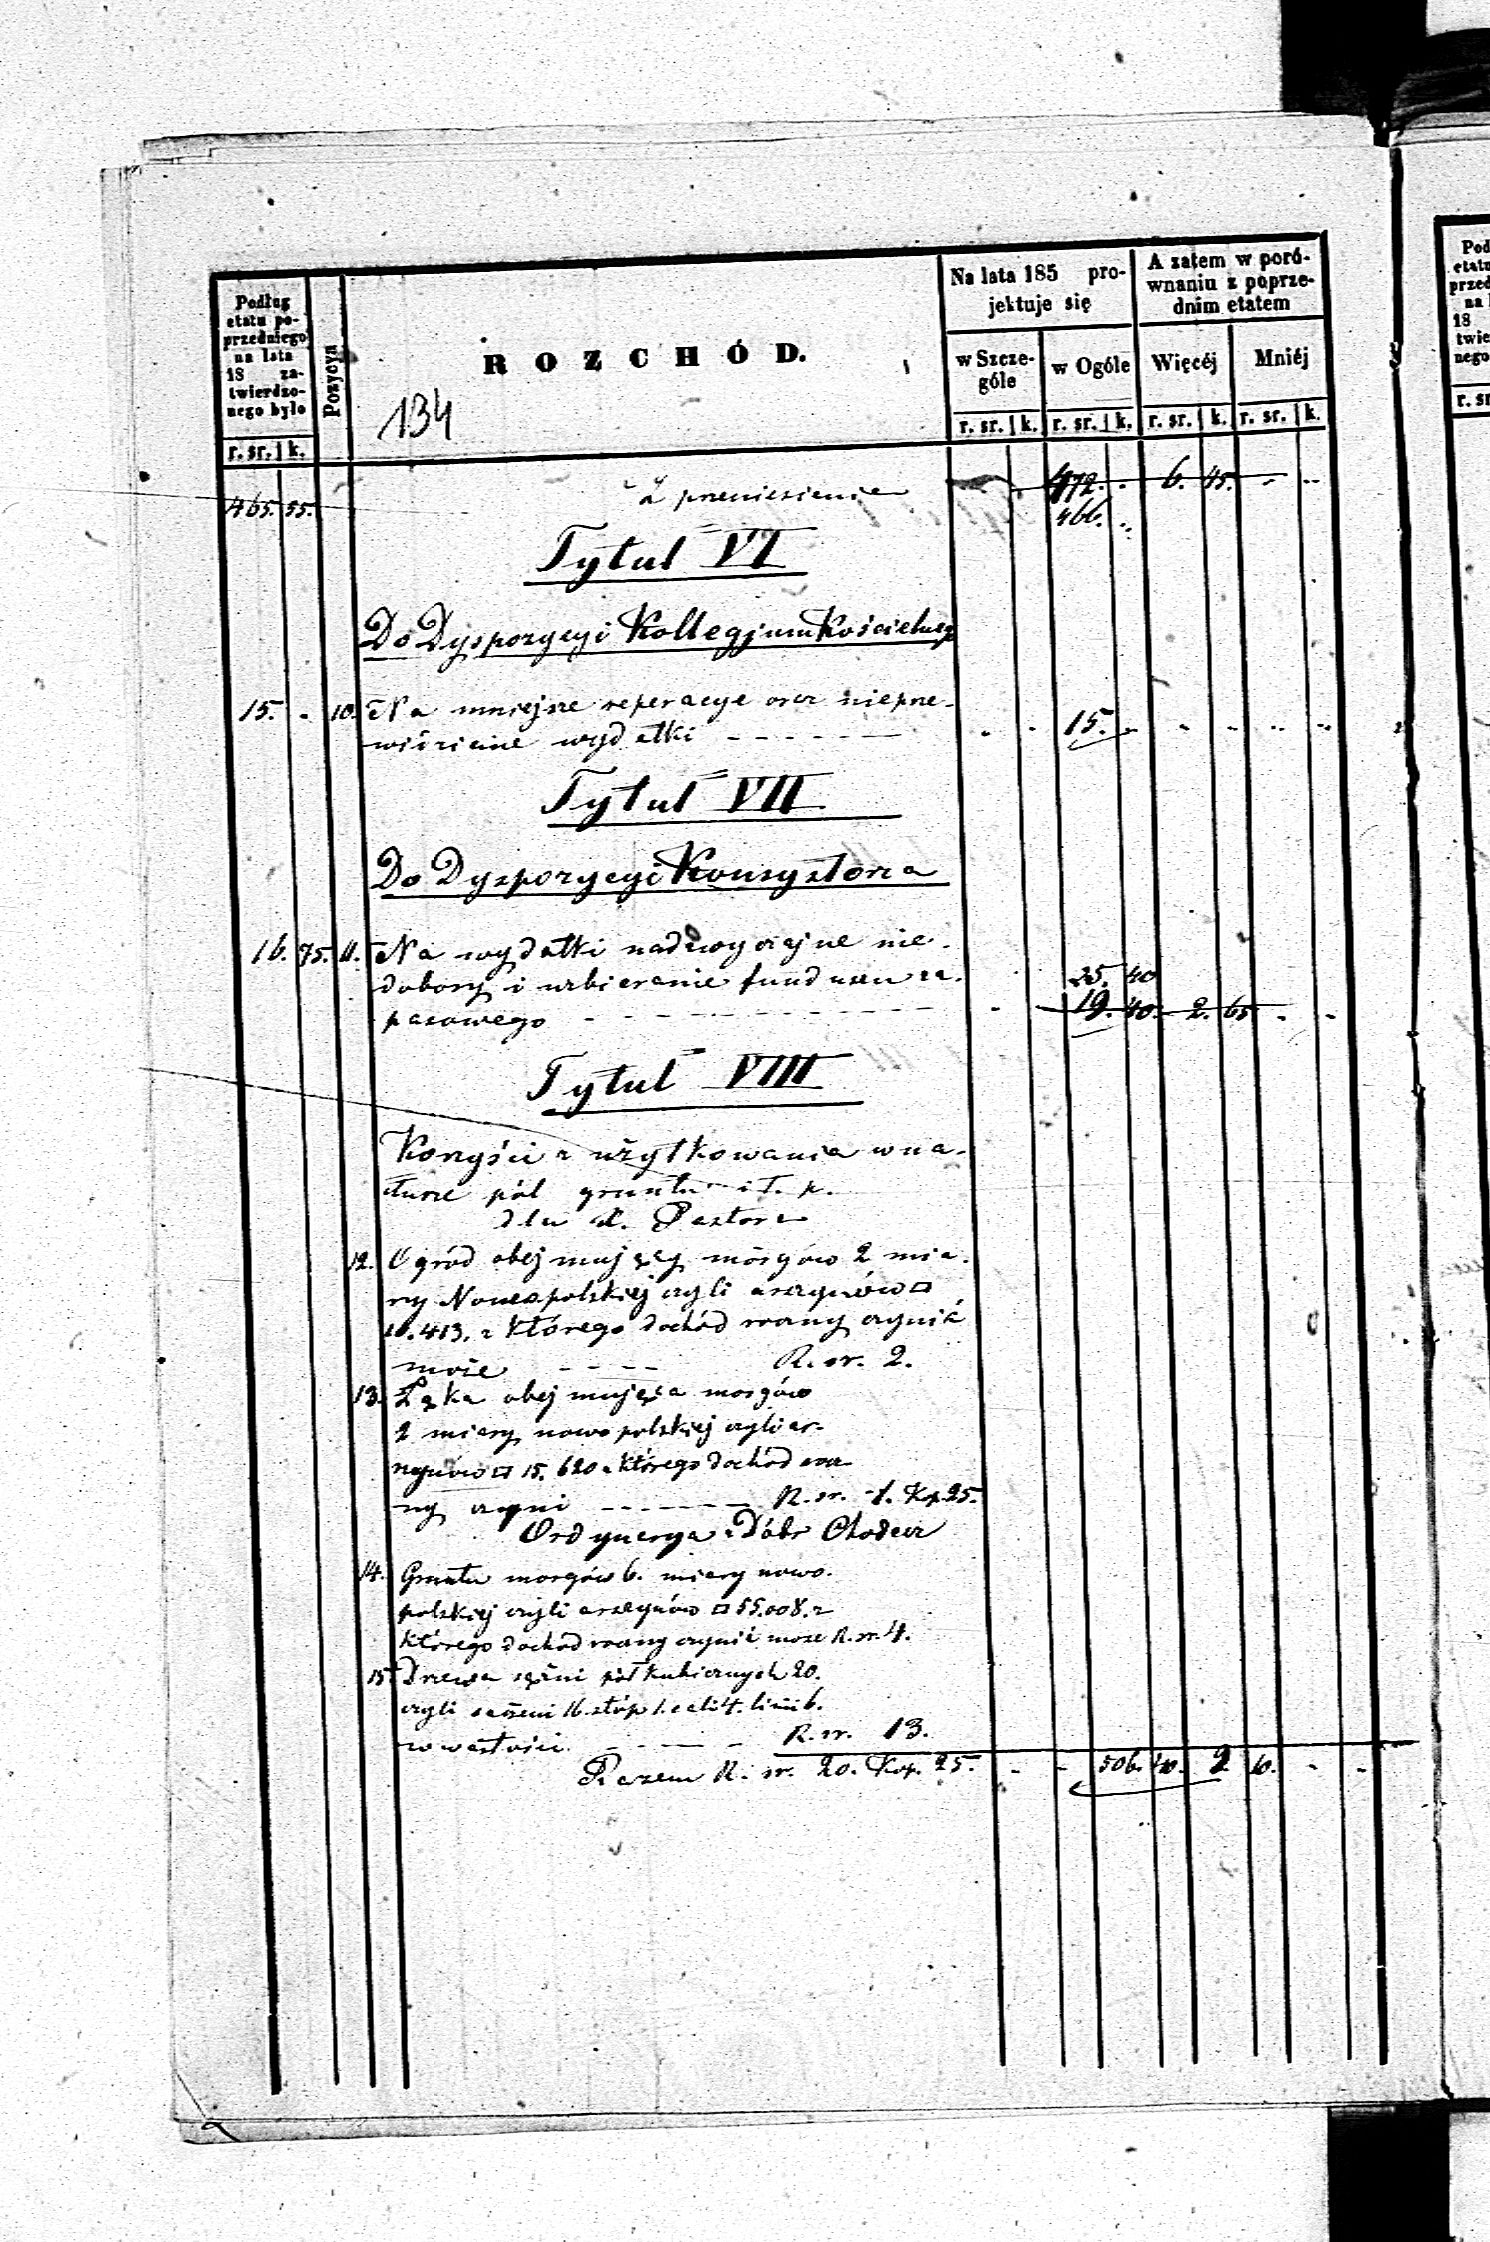 Podług
etatu po-
przedniego
na lata
18 za-
twierdzo-
nego było
r. sr. k.
Pozycya
ROZCHÓD.
134
Na lata 185 pro-
jektuje się
w Szcze-
góle
w Ogóle
r. sr. k. r. sr. k.
A zatem w poró-
wnaniu z poprze-
dnim etatem
Więcéj Mniéj
r. sr. k. r. sr. k.
465. 55. Z przeniesienia 472. - 6. 45. - -
466. -
Tytuł VI
Do Dyspozycyi Kollegjum Kościelneg
15. - 10. Na mniejsze reperacye oraz nieprze-
widziane wydatki - - - - - - 15. -
Tytuł VII
Do Dyspozycyi Konsystorza
16. 75. 11. Na wydatki nadzwyczajne nie-
dobory i uzbieranie funduszu za- 25. 40
pasowego - - - - - - 19. 40. 2. 65 - -
Tytuł VIII
Korzyści z użytkowania w na-
turze pól gruntu i t. p.
dla X. Pastora
12. Ogród obejmujący morgów 2 mia-
ry Nowopolskiej czyli arszynów □
10.413. z którego dochód roczny czynić
może - - - - R. sr. 2.
13. Łąka obejmująca morgów
2 miary nowopolskiej czyli ar-
szynów □ 15.620 z którego dochód rocz
ny czyni - - - - - - R. sr. 1. Kop. 25.
Ordynarya z Dóbr Chodecz
14. Gruntu morgów 6. miary nowo-
polskiej czyli arszynów □ 55.008. z
którego dochód roczny czynić może R. sr. 4.
15. Drzewa sążni pół kubicznych 20.
czyli sażeni 16. stóp 1. cali 4. linii 6.
w wartości - - - - R. sr. 13.
Razem R. sr. 20. Kop. 25. - - 506. 40. 2 10. - -
Pod
etatu
przed
na l
18
twie
nego
r. sr